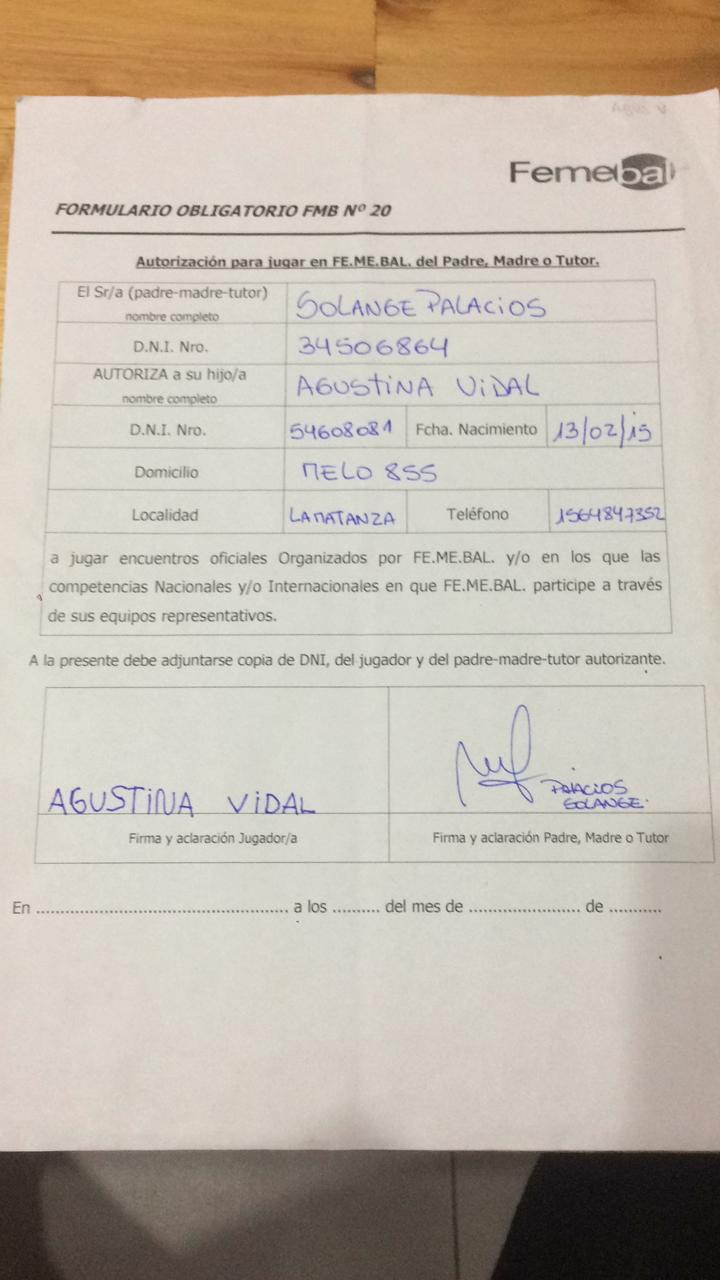 Agus V
Femebal
FORMULARIO OBLIGATORIO FMB Nº 20
Autorización para jugar en FE.ME.BAL. del Padre, Madre o Tutor.
El Sr/a (padre-madre-tutor) nombre completo SOLANGE PALACIOS
D.N.I. Nro. 34506864
AUTORIZA a su hijo/a nombre completo AGUSTINA VIDAL
D.N.I. Nro. 54608081 Fcha. Nacimiento 13/02/15
Domicilio MELO 855
Localidad LA MATANZA Teléfono 1564847352
a jugar encuentros oficiales Organizados por FE.ME.BAL. y/o en los que las
competencias Nacionales y/o Internacionales en que FE.ME.BAL. participe a través
de sus equipos representativos.
A la presente debe adjuntarse copia de DNI, del jugador y del padre-madre-tutor autorizante.
AGUSTINA VIDAL
PALACIOS
SOLANGE.
Firma y aclaración Jugador/a
Firma y aclaración Padre, Madre o Tutor
En ............................................... a los ......... del mes de ...................... de ..........